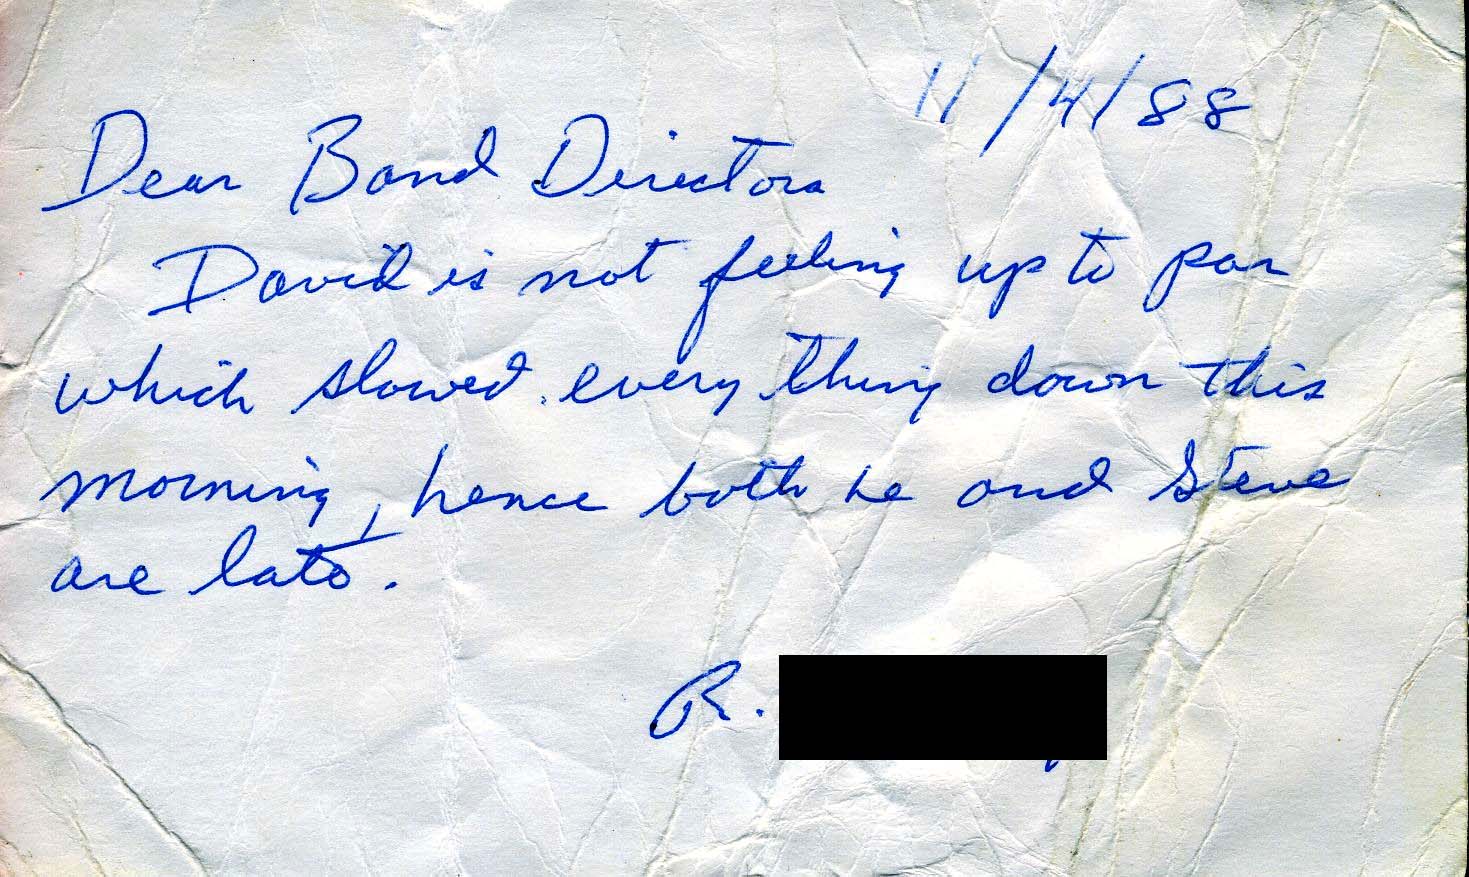 11/4/88
Dear Band Directors
David is not feeling up to par
which slowed everything down this
morning, hence both he and Steve
are late.
R.